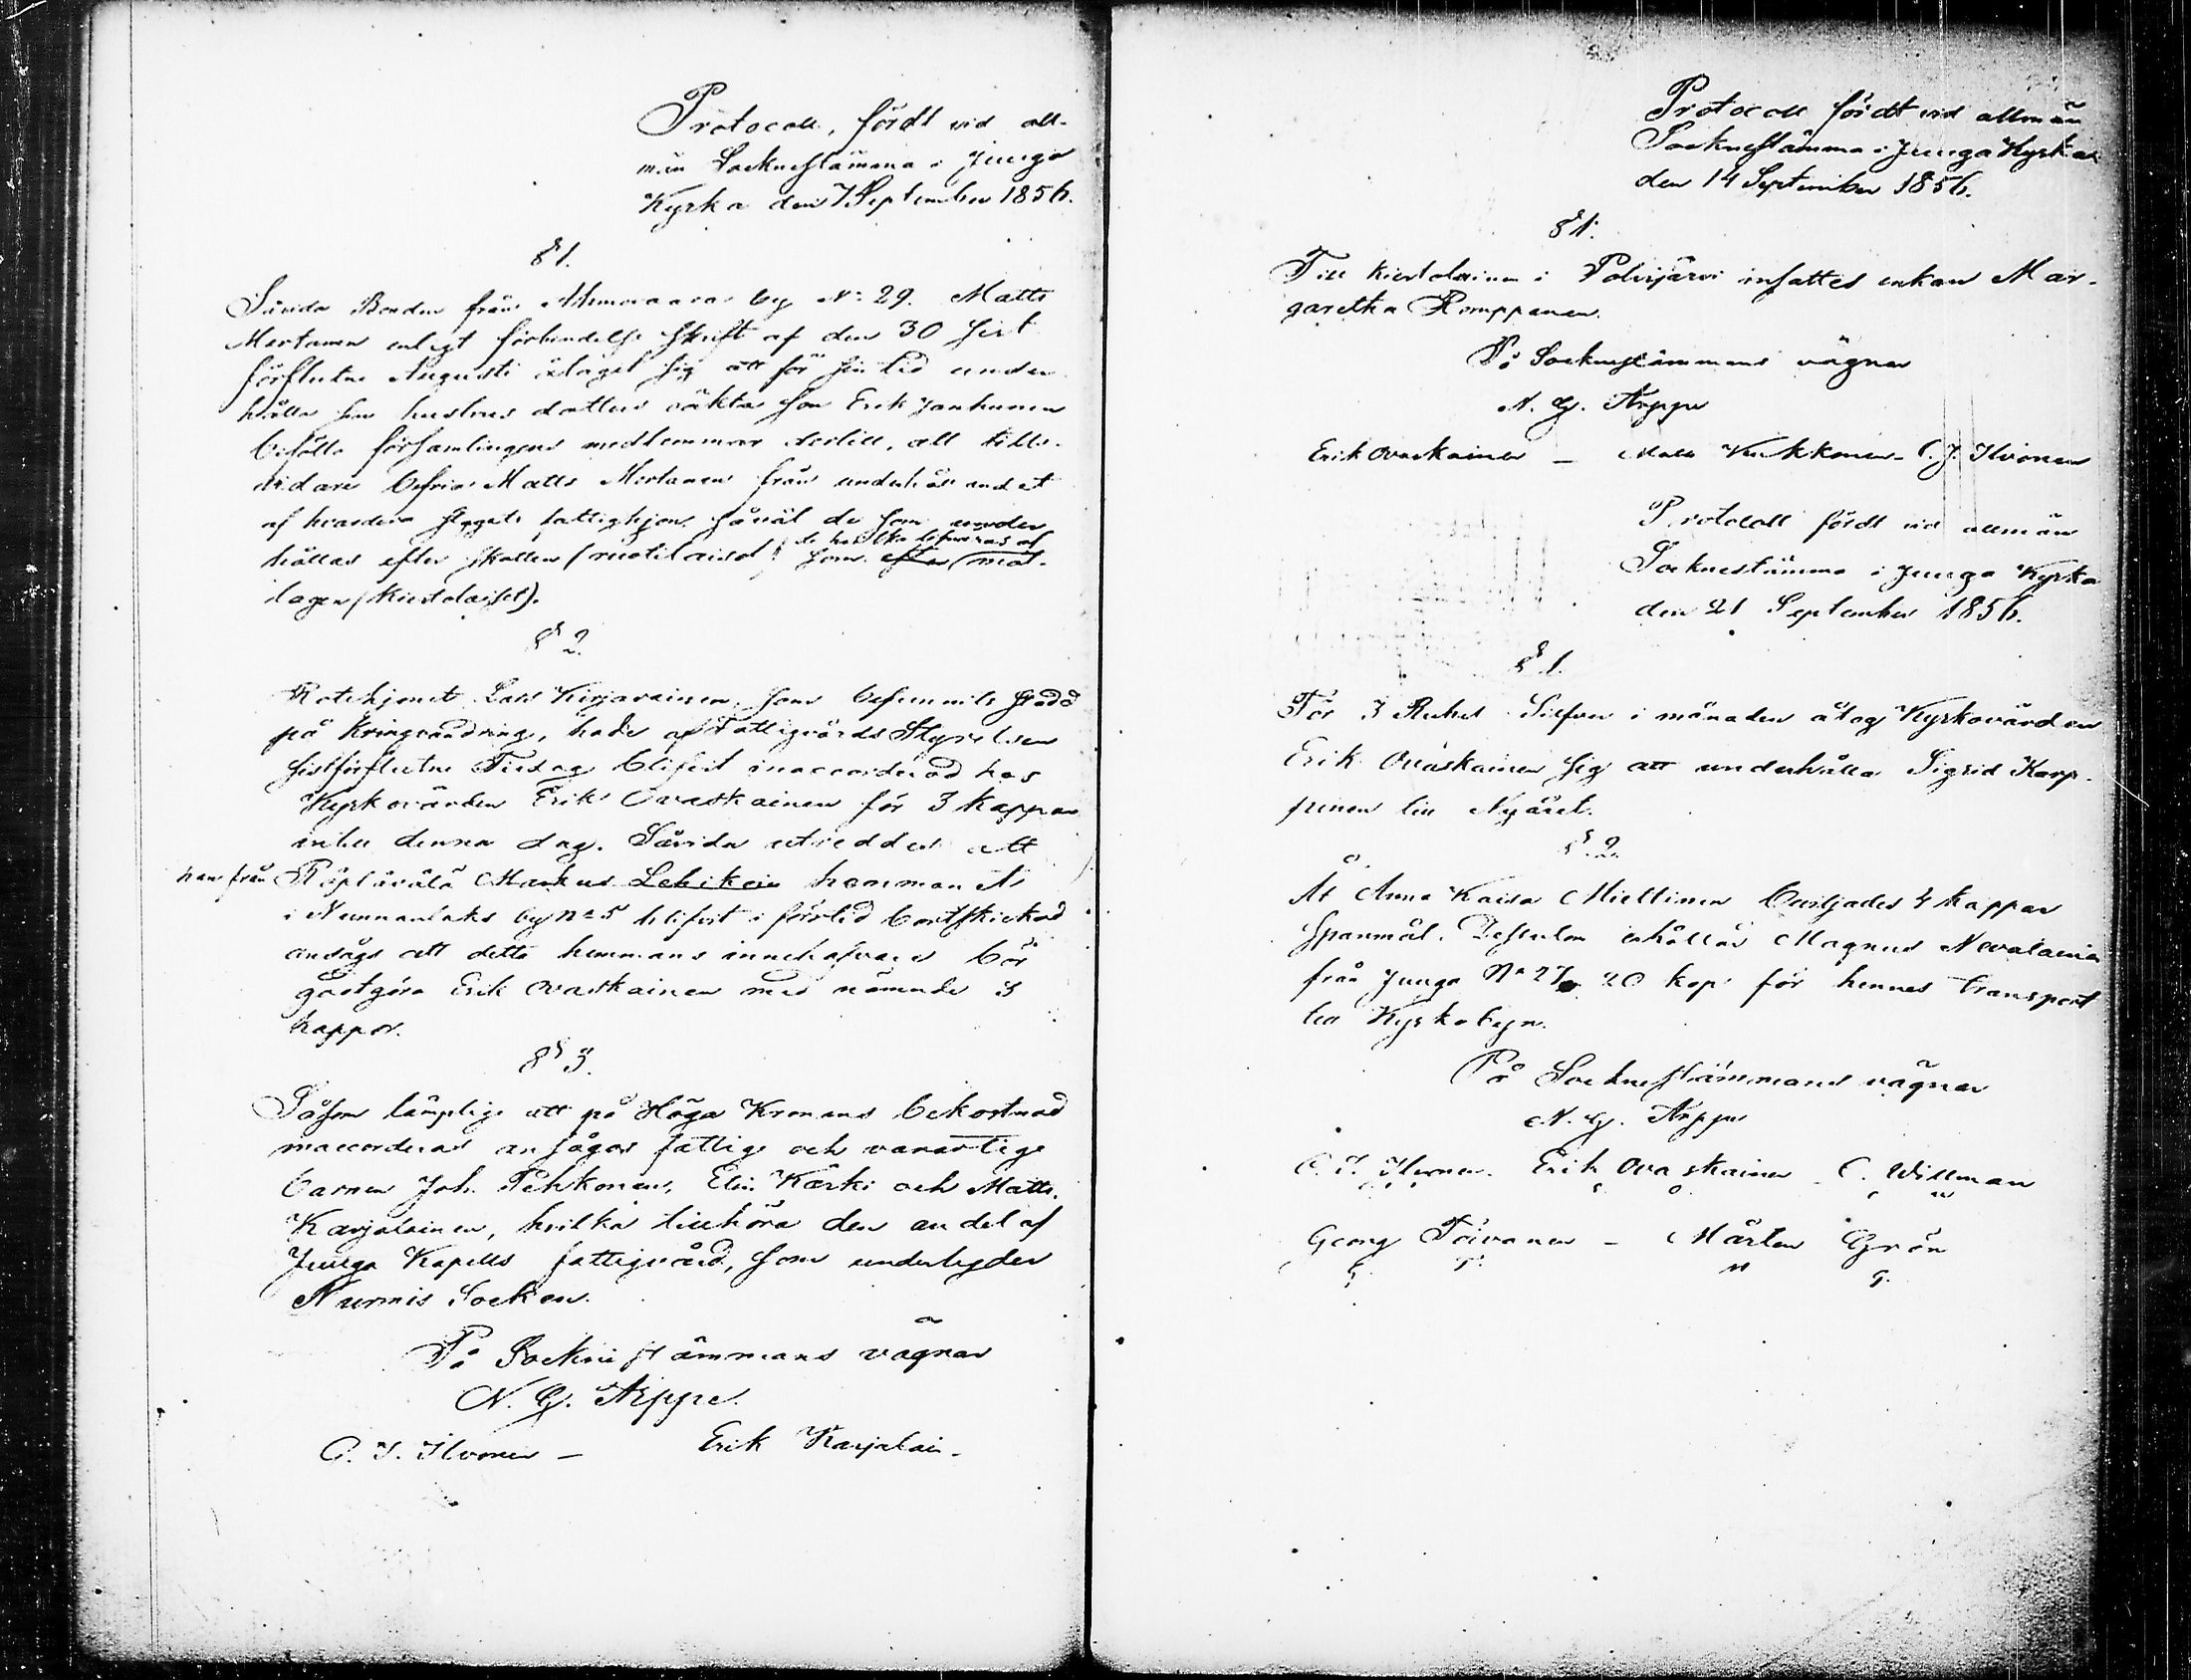 Protocoll, fördt vid all-
män Sockneslämma i Juuga
Kyrka den 7 September 1856.
§ 1.
Såvida Bonden från Ahmovaara by No 29. Matts
Mertanen enligt förbindelse skrift af den 30 sist
förflutne Augusti åtagit sig att för sin tid under
hålla sin hustrus dotters oäkta son Erik Janhunen
biföllo församlingens medlemmar dertill, att tills
vidare befria Matts Mertanen från underhållandet
af hvardera slagets fattighjon, såväl de som under
hållas efter skatten (ruotilaiset) som de hvilka lifnäras af mat-
lagen (kiertolaiset).
§ 2.
Rotehjonet Lars Kirjavainen, som befunnits stadd
på kringvandring, hade af Fattigvårds Styrelsen
sistförflutne Tisdag blifvit inaccorderad hos
Kyrkovärden Erik Ovaskainen för 3 kappar
intill denna dag. Såvida utreddes att
han från Räplävälä Markus Lehikoin hemman No
i Nunnanlaks by No 5 blifvit i förtid bortskickad
ansågs att detta hemmans innehafvare bör
godtgöra Erik Ovaskainen med nämnde 3
kappar.
§ 3.
Såsom lämplige att på Höga Kronans bekostnad
inaccorderas ansågos fattige och vanartige
barnen Joh. Pehkonen, Elin Kärki och Matts
Karjalainen, hvilka tillhöra den andel af
Juuga Kapells fattigvård, som underlyder
Nurmis Socken.
På Socknestämmans vägnar
N. G. Arppe.
C. J. Ilvonen – Erik Karjalai-
Protocoll fördt vid allmän
Socknestämma i Juuga Kyrka
den 14 September 1856.
§ 1.
Till kiertolainen i Polvijärvi insattes enkan Mar-
garetha Romppanen.
På Socknestämmans vägnar
N. G. Arppe
Erik Ovaskainen – Matts Kukkonen – C. J. Ilvonen
Protocoll fördt vid allmän
Socknestämma i Juuga Kyrka
den 21 September 1856.
§ 1.
För 3 Rubel Silfver i månaden åtog Kyrkovärden
Erik Ovaskainen sig att underhålla Sigrid Karp-
pinen till Nyåret.
§ 2.
Åt Anna Kaisa Miettinen beviljades 4 kappar
spanmål. Dessutom erhåller Magnus Nevalainen
från Juuga No 27 20 kop för hennes transport
till Kyrkobyn.
På Socknestämmans vägnar
N. G. Arppe
C. J. Ilvonen. Erik Ovaskainen C. Willman
Georg Toivanen – Mårten Grön